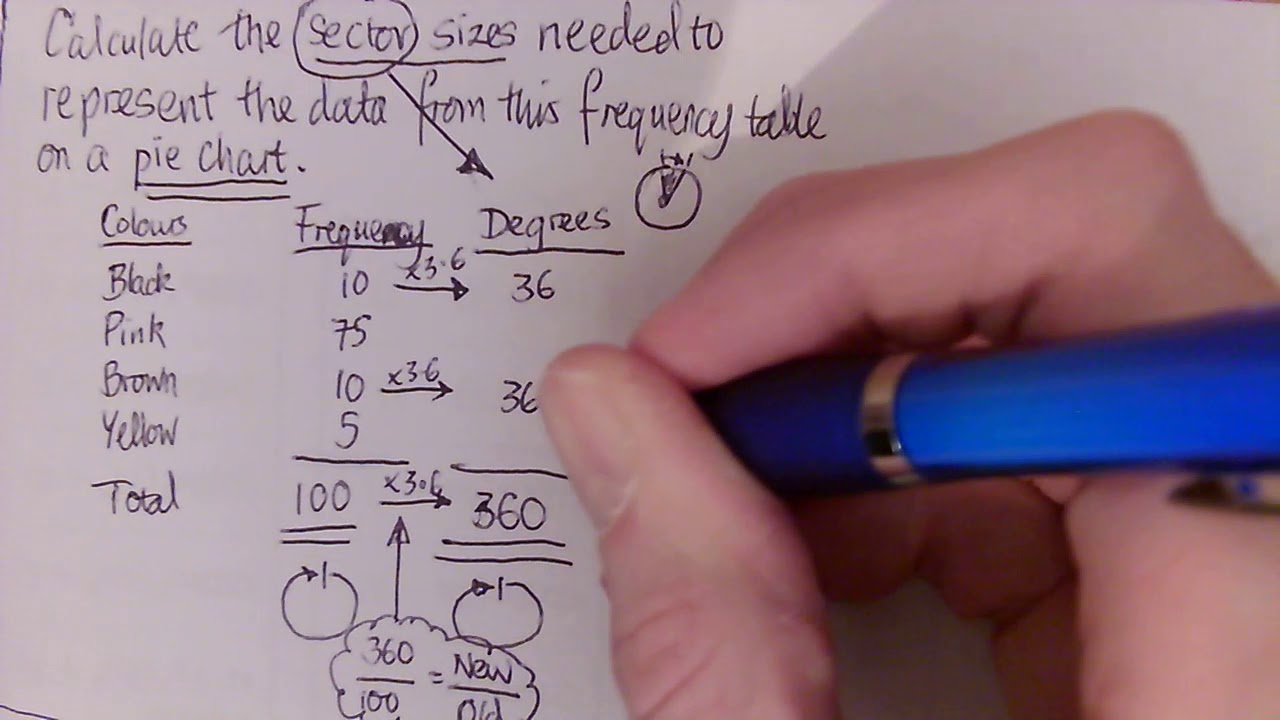 Calculate the sector sizes needed to
represent the data from this frequency table
on a pie chart.
Colours Frequency Degrees
Black 10 x3.6 36
Pink 75
Brown 10 x3.6 36
Yellow 5
Total 100 x3.6 360
360 = New
100 Old